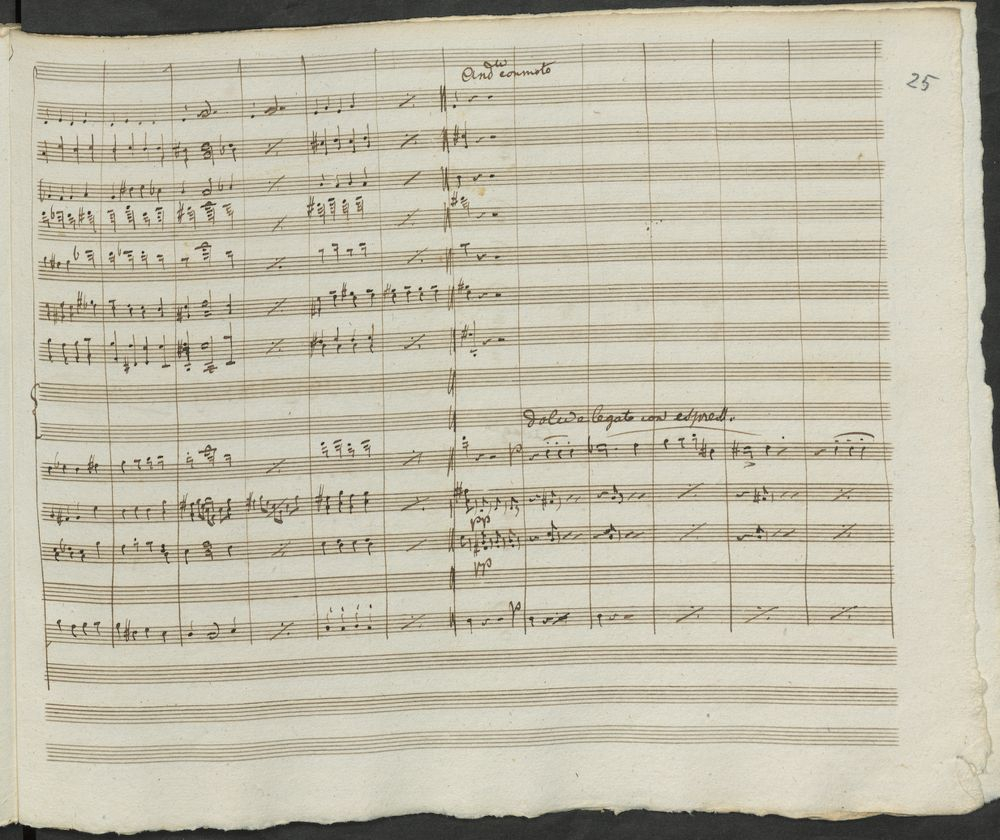 And.te con moto
25
dolce e legato con espress.
p
pp
pp
p